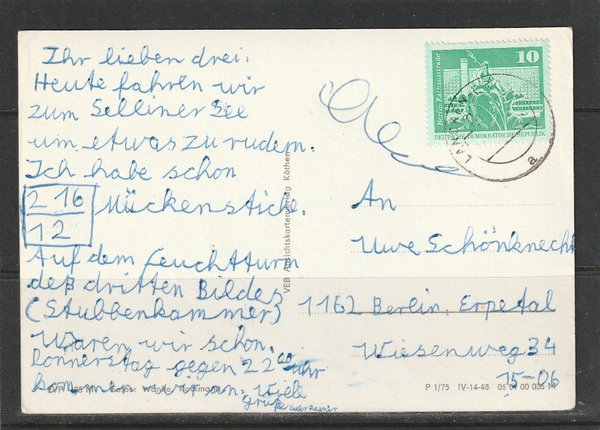 Ihr lieben drei.
Heute fahren wir
zum Selliner See
um etwas zu rudern.
Ich habe schon
216 Mückenstiche.
12
Auf dem Leuchtturm
des dritten Bildes
(Stubbenkammer)
waren wir schon.
Donnerstag gegen 22 00 Uhr
kommen wir an. Viele
Grüße euer
10
Berlin, Rathausstraße
DEUTSCHE DEMOKRATISCHE REPUBLIK
An
Uwe Schönknecht
1162 Berlin, Erpetal
Wiesenweg 34
15-06
VEB Ansichtskartenverlag Köthen
P 1/75 IV-14-48 05 01 00 036 N